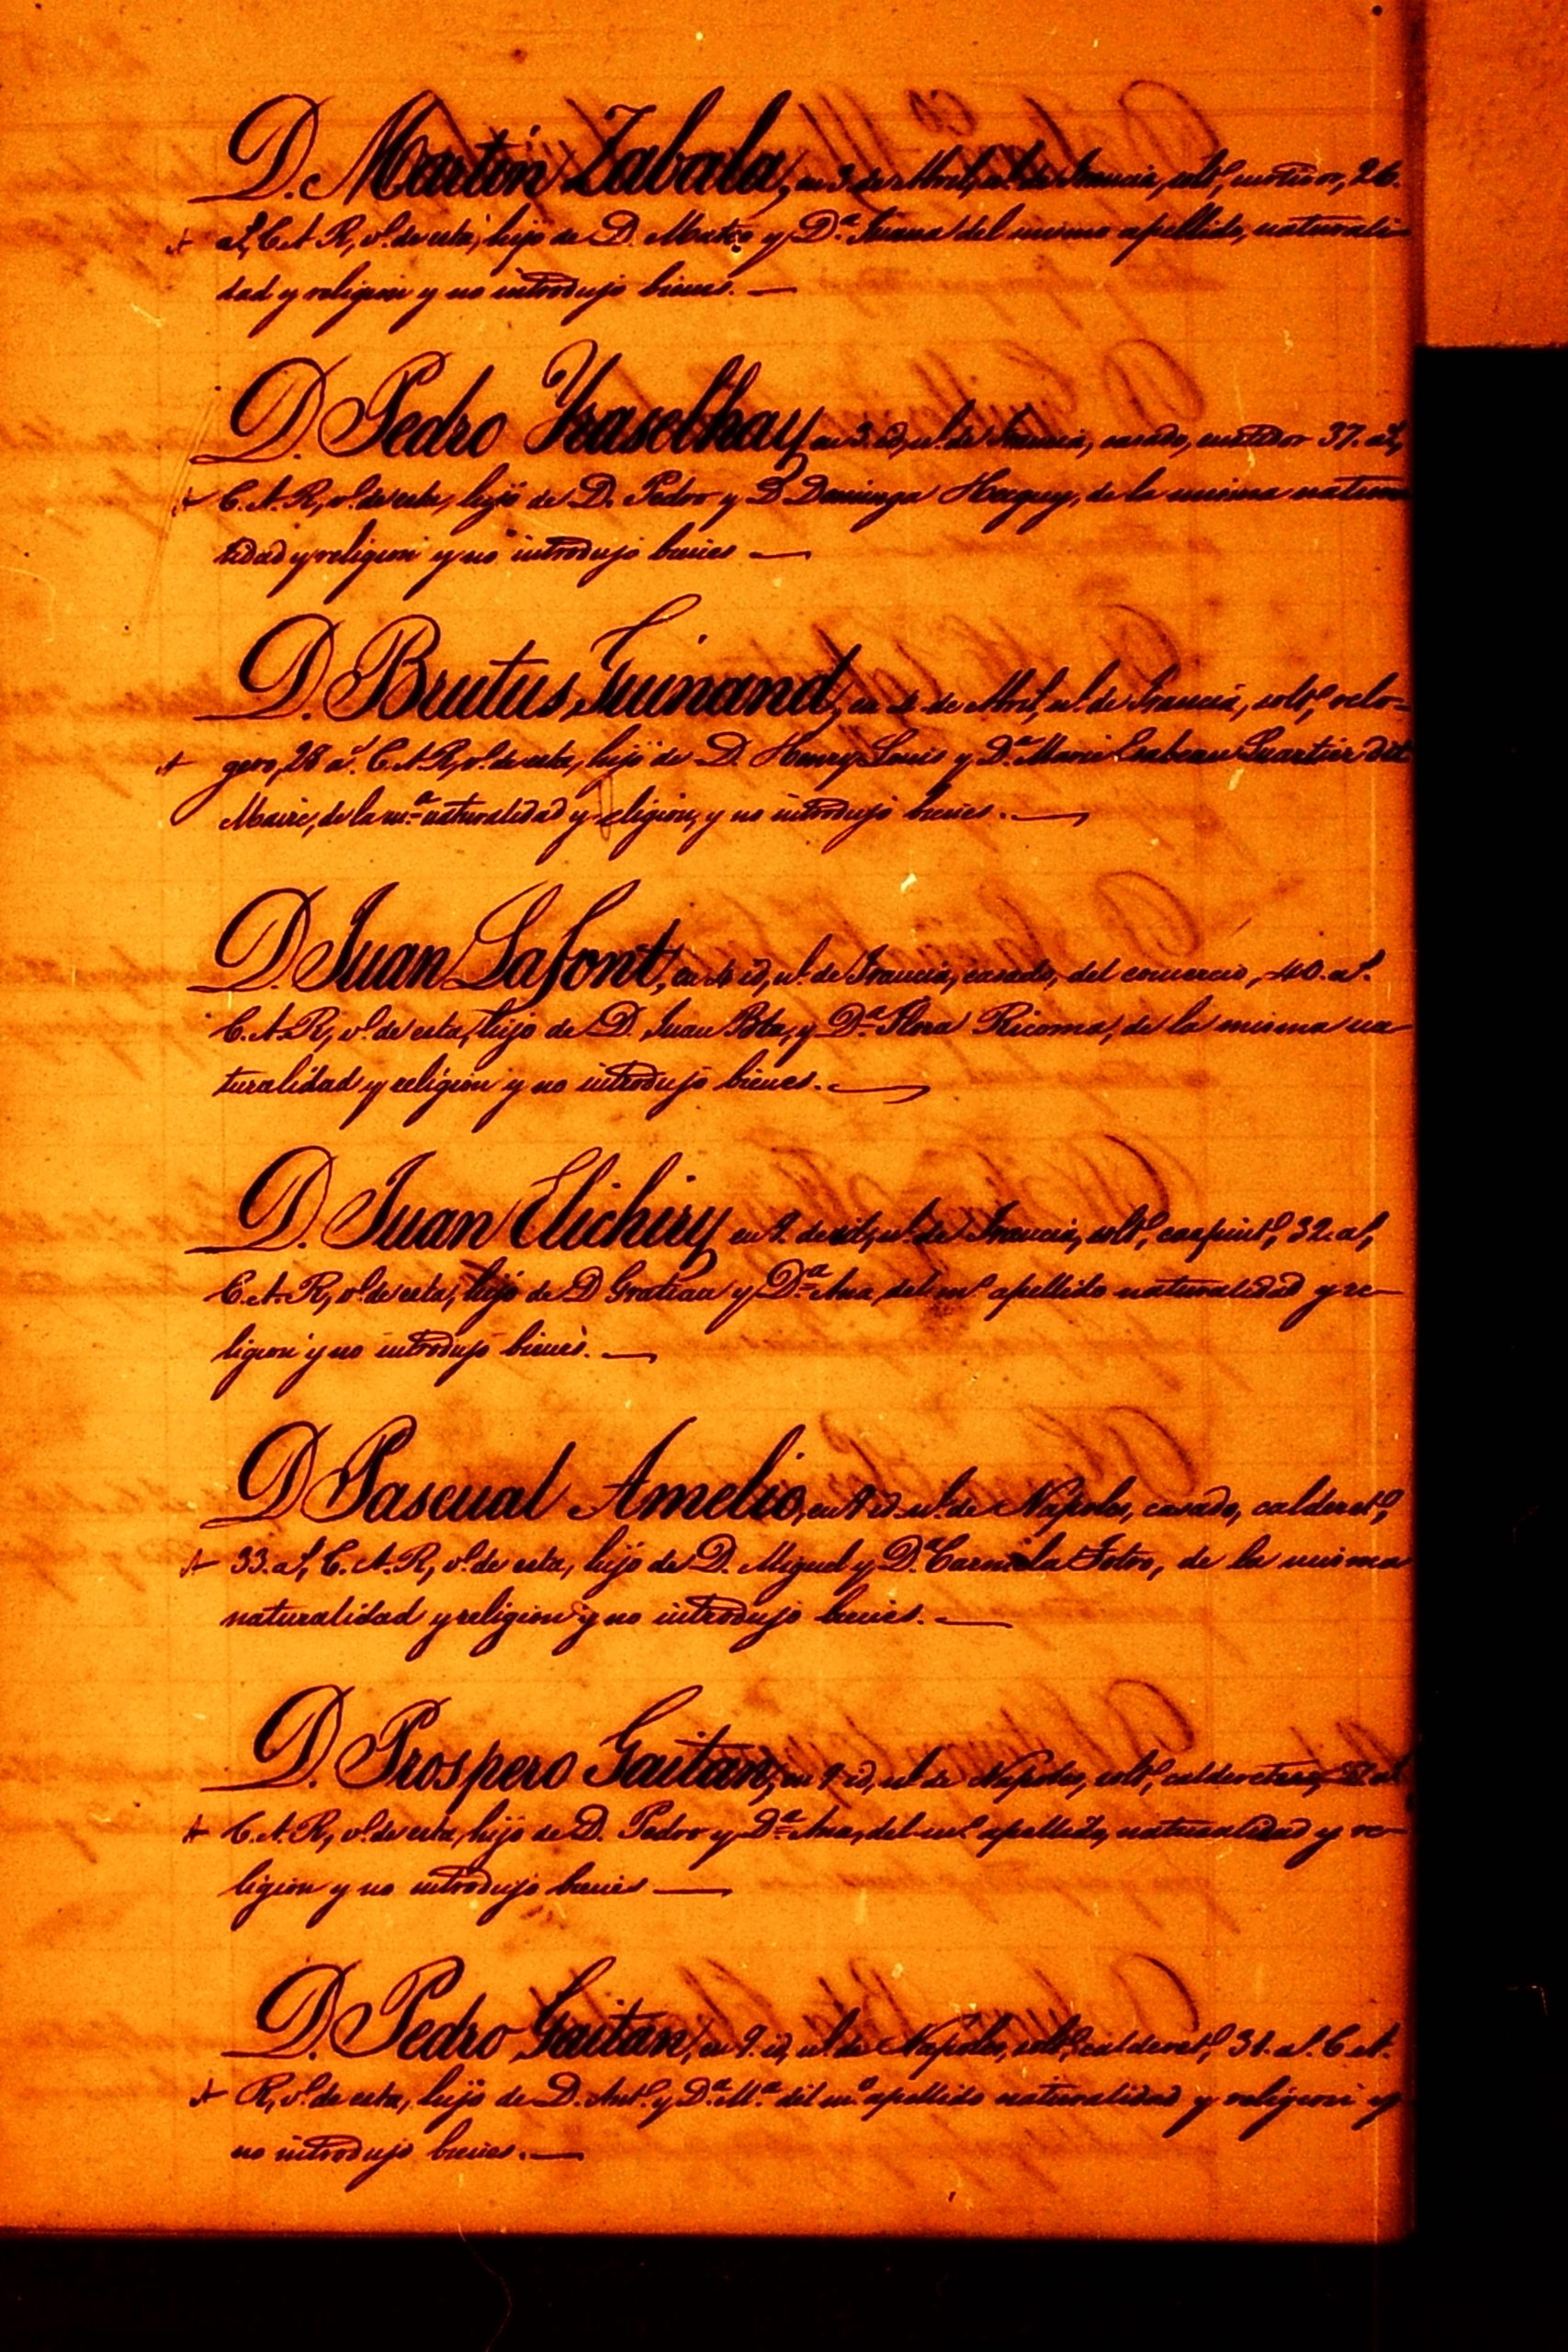 D. Martin Zabala, en 3 de Abril, nl. de Francia, solt.º, curtidor, 26.
a.s, C. A. R, v.º de esta, hijo de D. Mateo y D.ª Juana del mismo apellido, naturali-
dad y religion y no introdujo bienes. —
D. Pedro Yraselhay en 3 id, nl. de Francia, casado, curtidor 37. a.s,
C. A. R, v.º de esta, hijo de D. Pedro y D.ª Dominga Heguy, de la misma natura-
lidad y religion y no introdujo bienes —
D. Brutus Guinand, en 4 de Abril, nl. de Francia, solt.º, relo-
gero, 28 a.s C. A. R, v.º de esta, hijo de D. Henry Louis y D.ª Marie Esabeau Quartier dit
Maire, de la m.ª naturalidad y religion, y no introdujo bienes. —
D. Juan Lafont, en 4 id, nl. de Francia, casado, del comercio, 40. a.s.
C. A. R, v.º de esta, hijo de D. Juan Bta, y D.ª Flora Ricoma, de la misma na-
turalidad y religion y no introdujo bienes. —
D. Juan Elichiry en 9. de id, nl. de Francia, solt.º, carpint.º, 32. a.s,
C. A. R, v.º de esta, hijo de D Gratian y D.ª Ana del m.º apellido naturalidad y re-
ligion y no introdujo bienes. —
D Pascual Amelio, en 9 id. nl. de Napoles, casado, calderet.º,
33. a.s, C. A. R, v.º de esta, hijo de D. Miguel y D.ª Carmela, de la misma
naturalidad y religion y no introdujo bienes. —
D. Prospero Gaitan, en 9 id, nl. de Napoles, solt.º, calderetero,
C. A. R, v.º de esta, hijo de D. Pedro y D.ª Ana, del m.º apellido, naturalidad y re-
ligion y no introdujo bienes —
D. Pedro Gaitan, en 9. id, nl. de Napoles, solt.º, calderet.º, 31. a.s. C. A.
R, v.º de esta, hijo de D. Ant.º y D.ª M.ª del m.º apellido naturalidad y religion y
no introdujo bienes. —